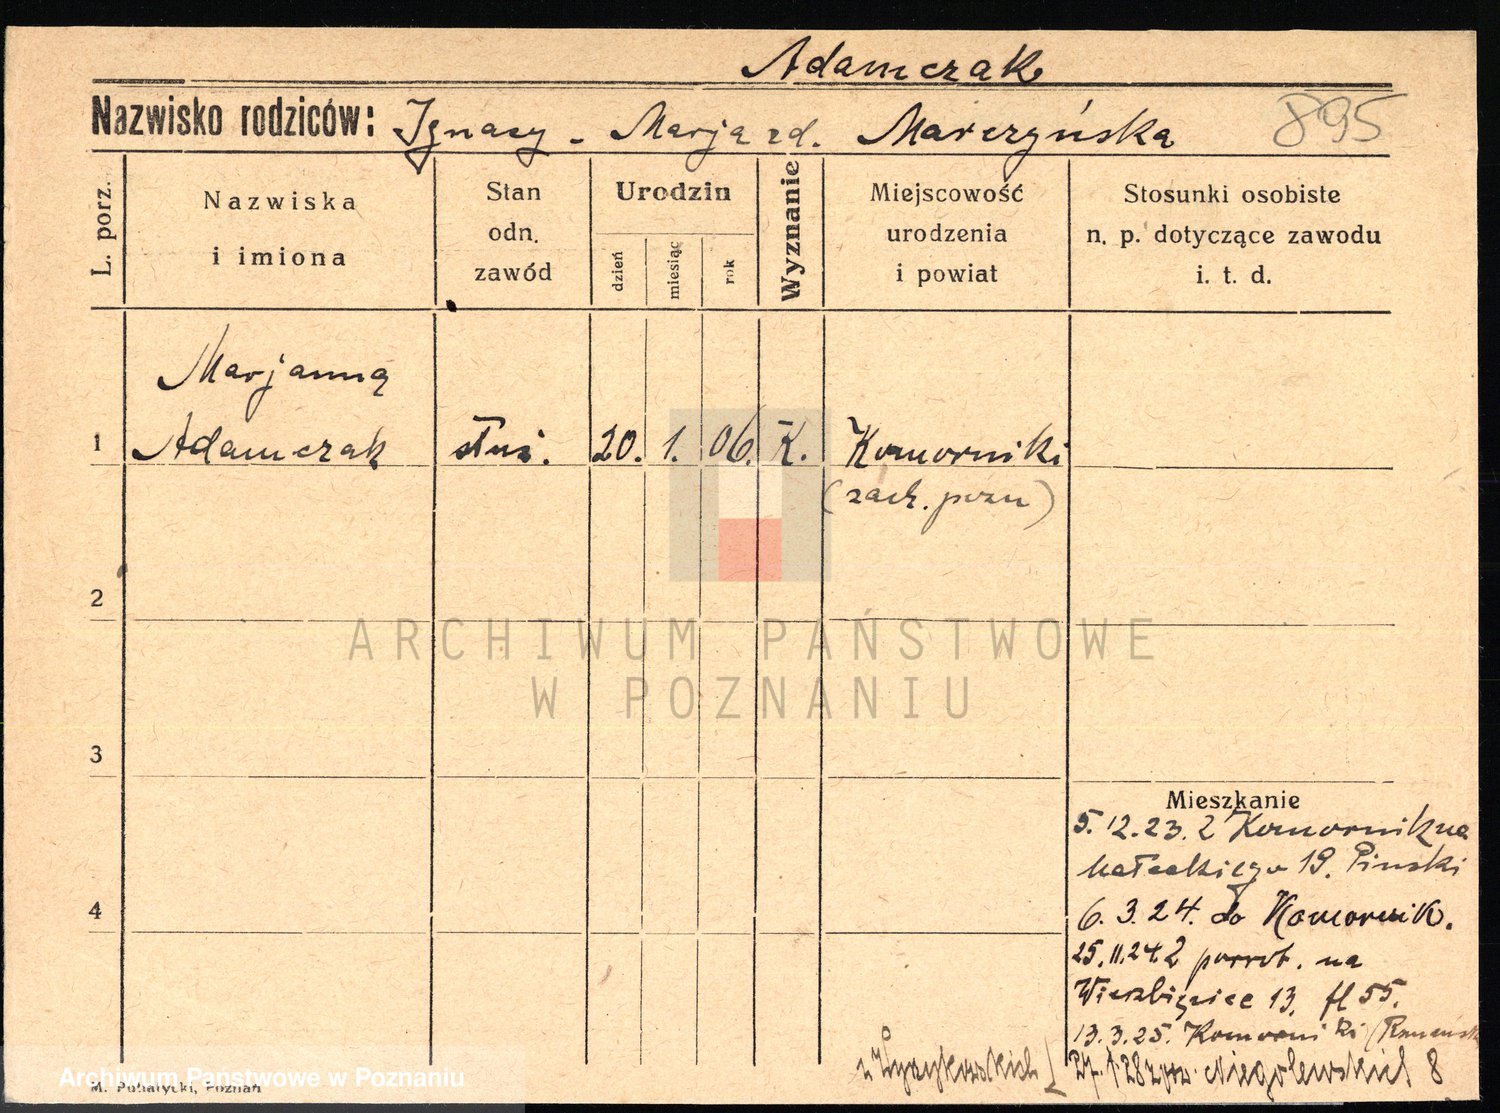 Adamczak
Nazwisko rodziców: Ignacy - Marja zd. Marczyńska 895
L. porz.
Nazwiska
i imiona
Stan
odn.
zawód
Urodzin
dzień
miesiąc
rok
Wyznanie
Miejscowość
urodzenia
i powiat
Stosunki osobiste
n. p. dotyczące zawodu
i. t. d.
Marjanna
1 Adamczak służ. 20. 1. 06. K. Komorniki
(zach. pozn)
2
ARCHIWUM PAŃSTWOWE
W POZNANIU
3
4
Mieszkanie
5. 12. 23. z Komornik na
Małeckiego 19. Pinski
6. 3. 24. do Komornik.
25. 11. 24. z powrot. na
Wierzbięcice 13. fl 55.
13. 3. 25. Komorniki
27. 1. 28 Niegolewskich 8
Archiwum Państwowe w Poznaniu
M. Puhatycki, Poznań